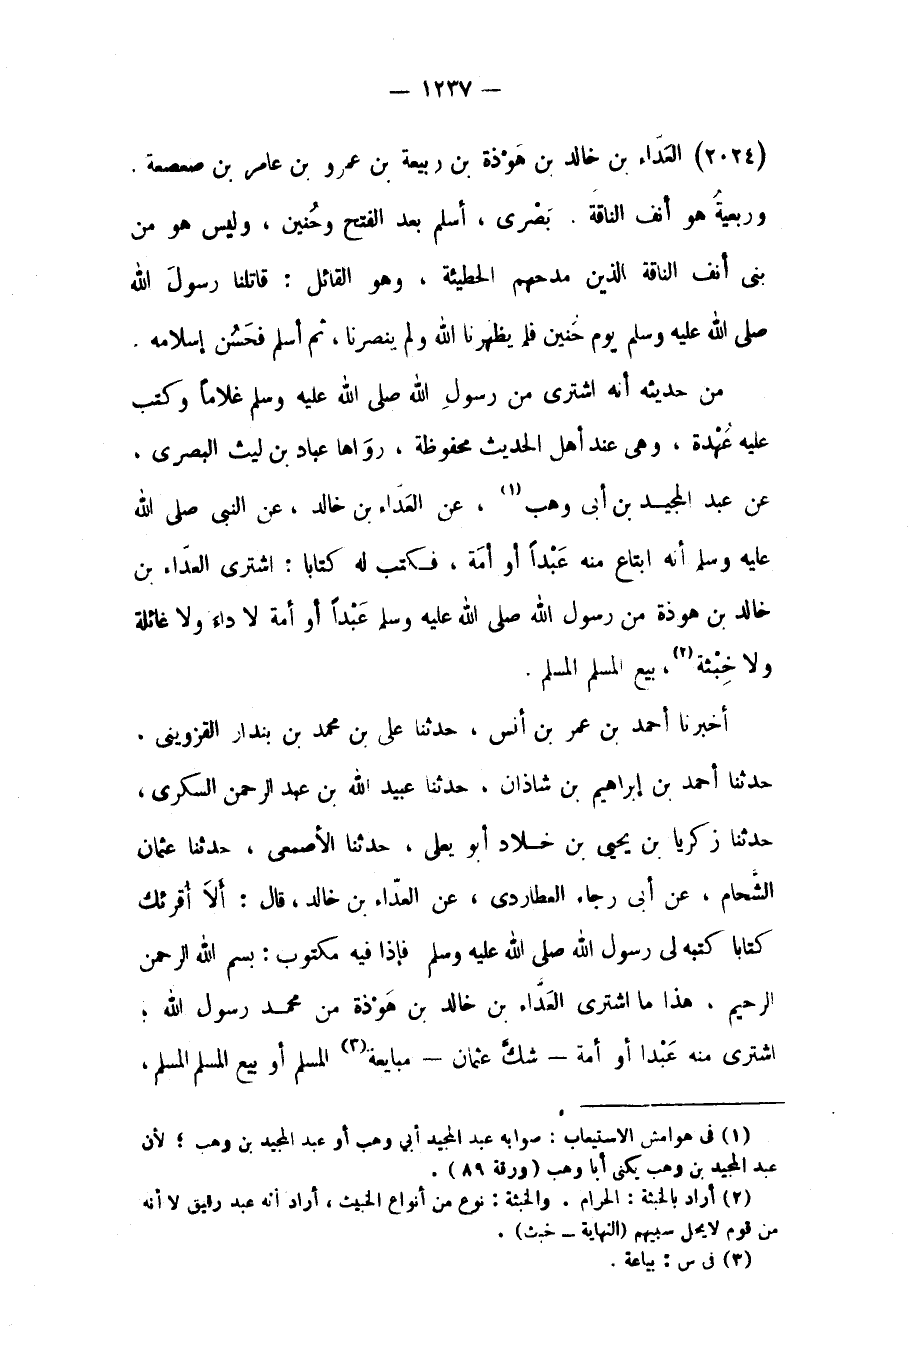 — ١٢٣٧ —
(٢٠٢٤) العَدّاء بن خالد بن هَوْذة بن ربيعة بن عمرو بن عامر بن صعصعة .
وربعيةُ هو أنف الناقة . بَصْرى ، أسلم بعد الفتح وحُنين ، وليس هو من
بنى أنف الناقة الذين مدحهم الحطيئة ، وهو القائل : قاتلنا رسولَ الله
صلى الله عليه وسلم يوم حُنين فلم يظهرنا الله ولم ينصرنا ، ثم أسلم فحَسُن إسلامه .
من حديثه أنه اشترى من رسولِ الله صلى الله عليه وسلم غلاماً وكتب
عليه عُهْدة ، وهى عند أهل الحديث محفوظة ، رواها عباد بن ليث البصرى ،
عن عبد المجيـد بن أبى وهب (١) ، عن العَدّاء بن خالد ، عن النبى صلى الله
عليه وسلم أنه ابتاع منه عَبْداً أو أمَة ، فـكتب له كتابا : اشترى العدّاء بن
خالد بن هوذة من رسول الله صلى الله عليه وسلم عَبْداً أو أمة لا داء ولا غائلة
ولا خِبْثة (٢) ، بيع المسلم المسلم .
أخبرنا أحمد بن عمر بن أنس ، حدثنا على بن محمد بن بندار القزوينى .
حدثنا أحمد بن إبراهيم بن شاذان . حدثنا عبيد الله بن عبد الرحمن السكرى ،
حدثنا زكريا بن يحيى بن خـلاد أبو يعلى ، حدثنا الأصمعى ، حدثنا عثمان
الشَّحام ، عن أبى رجاء العطاردى ، عن العدّاء بن خالد ، قال : ألَا أُقرئك
كتابا كتبه لى رسول الله صلى الله عليه وسلم فإذا فيه مكتوب : بسم الله الرحمن
الرحيم . هذا ما اشترى العَدَّاء بن خالد بن هَوْذة من محمـد رسول الله ؛
اشترى منه عَبْدا أو أمة — شكَّ عثمان — مبايعة (٣) المسلم أو بيع المسلم المسلم ،
(١) فى هوامش الاستيعاب : صوابه عبد المجيد أبي وهب أو عبد المجيد بن وهب ؛ لأن
عبد المجيد بن وهب يكنى أبا وهب (ورقة ٨٩) .
(٢) أراد بالخبثة : الحرام . والخبثة : نوع من أنواع الخبيث ، أراد أنه عبد رقيق لا أنه
من قوم لا يحل سبيهم (النهاية — خبث) .
(٣) فى س : بياعة .